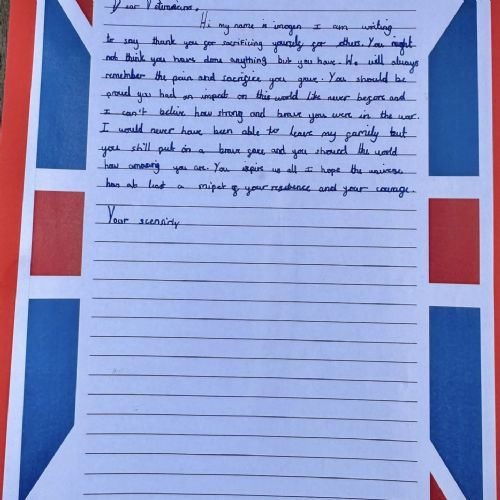 Dear Veterinians,
Hi my name is imogen I am writing
to say thank you for sacrificing yourself for others. You might
not think you have done anything but you have. We will always
remember the pain and sacrifice you gave. You should be
proud you had an impact on this world like never before and
I can't belive how strong and brave you were in the war.
I would never have been able to leave my family but
you still put on a brave face and you showed the world
how amazing you are. You inspire us all I hope the universe
has at least a snipet of your resilience and your courage.
Your scensirly